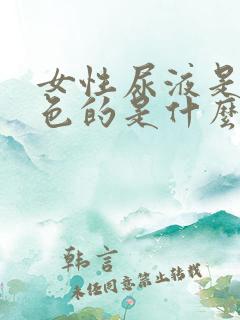 女性尿液是
色的是什么
韩言
未经同意禁止转载